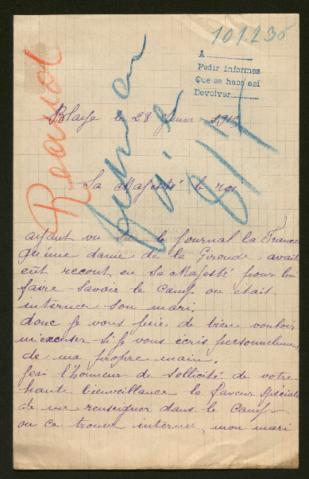 101235
A
Pedir informes
Que se haga así
Devolver
Blaye le 28 1915
Sa Majesté le roi
ayant vu le Journal la France
qu'une dame de la Gironde avait
eut recourt en Sa Majesté pour lui
faire savoir le Camp ou était
interner son mari,
donc Je vous prie de bien vouloir
m'excuser si Je vous écris personnellement
de ma propre main.
J'ai l'honneur de sollicité de votre
haute bienveillance la faveur spéciale
de me renseigner dans le Camp
ou ce trouve interner mon mari